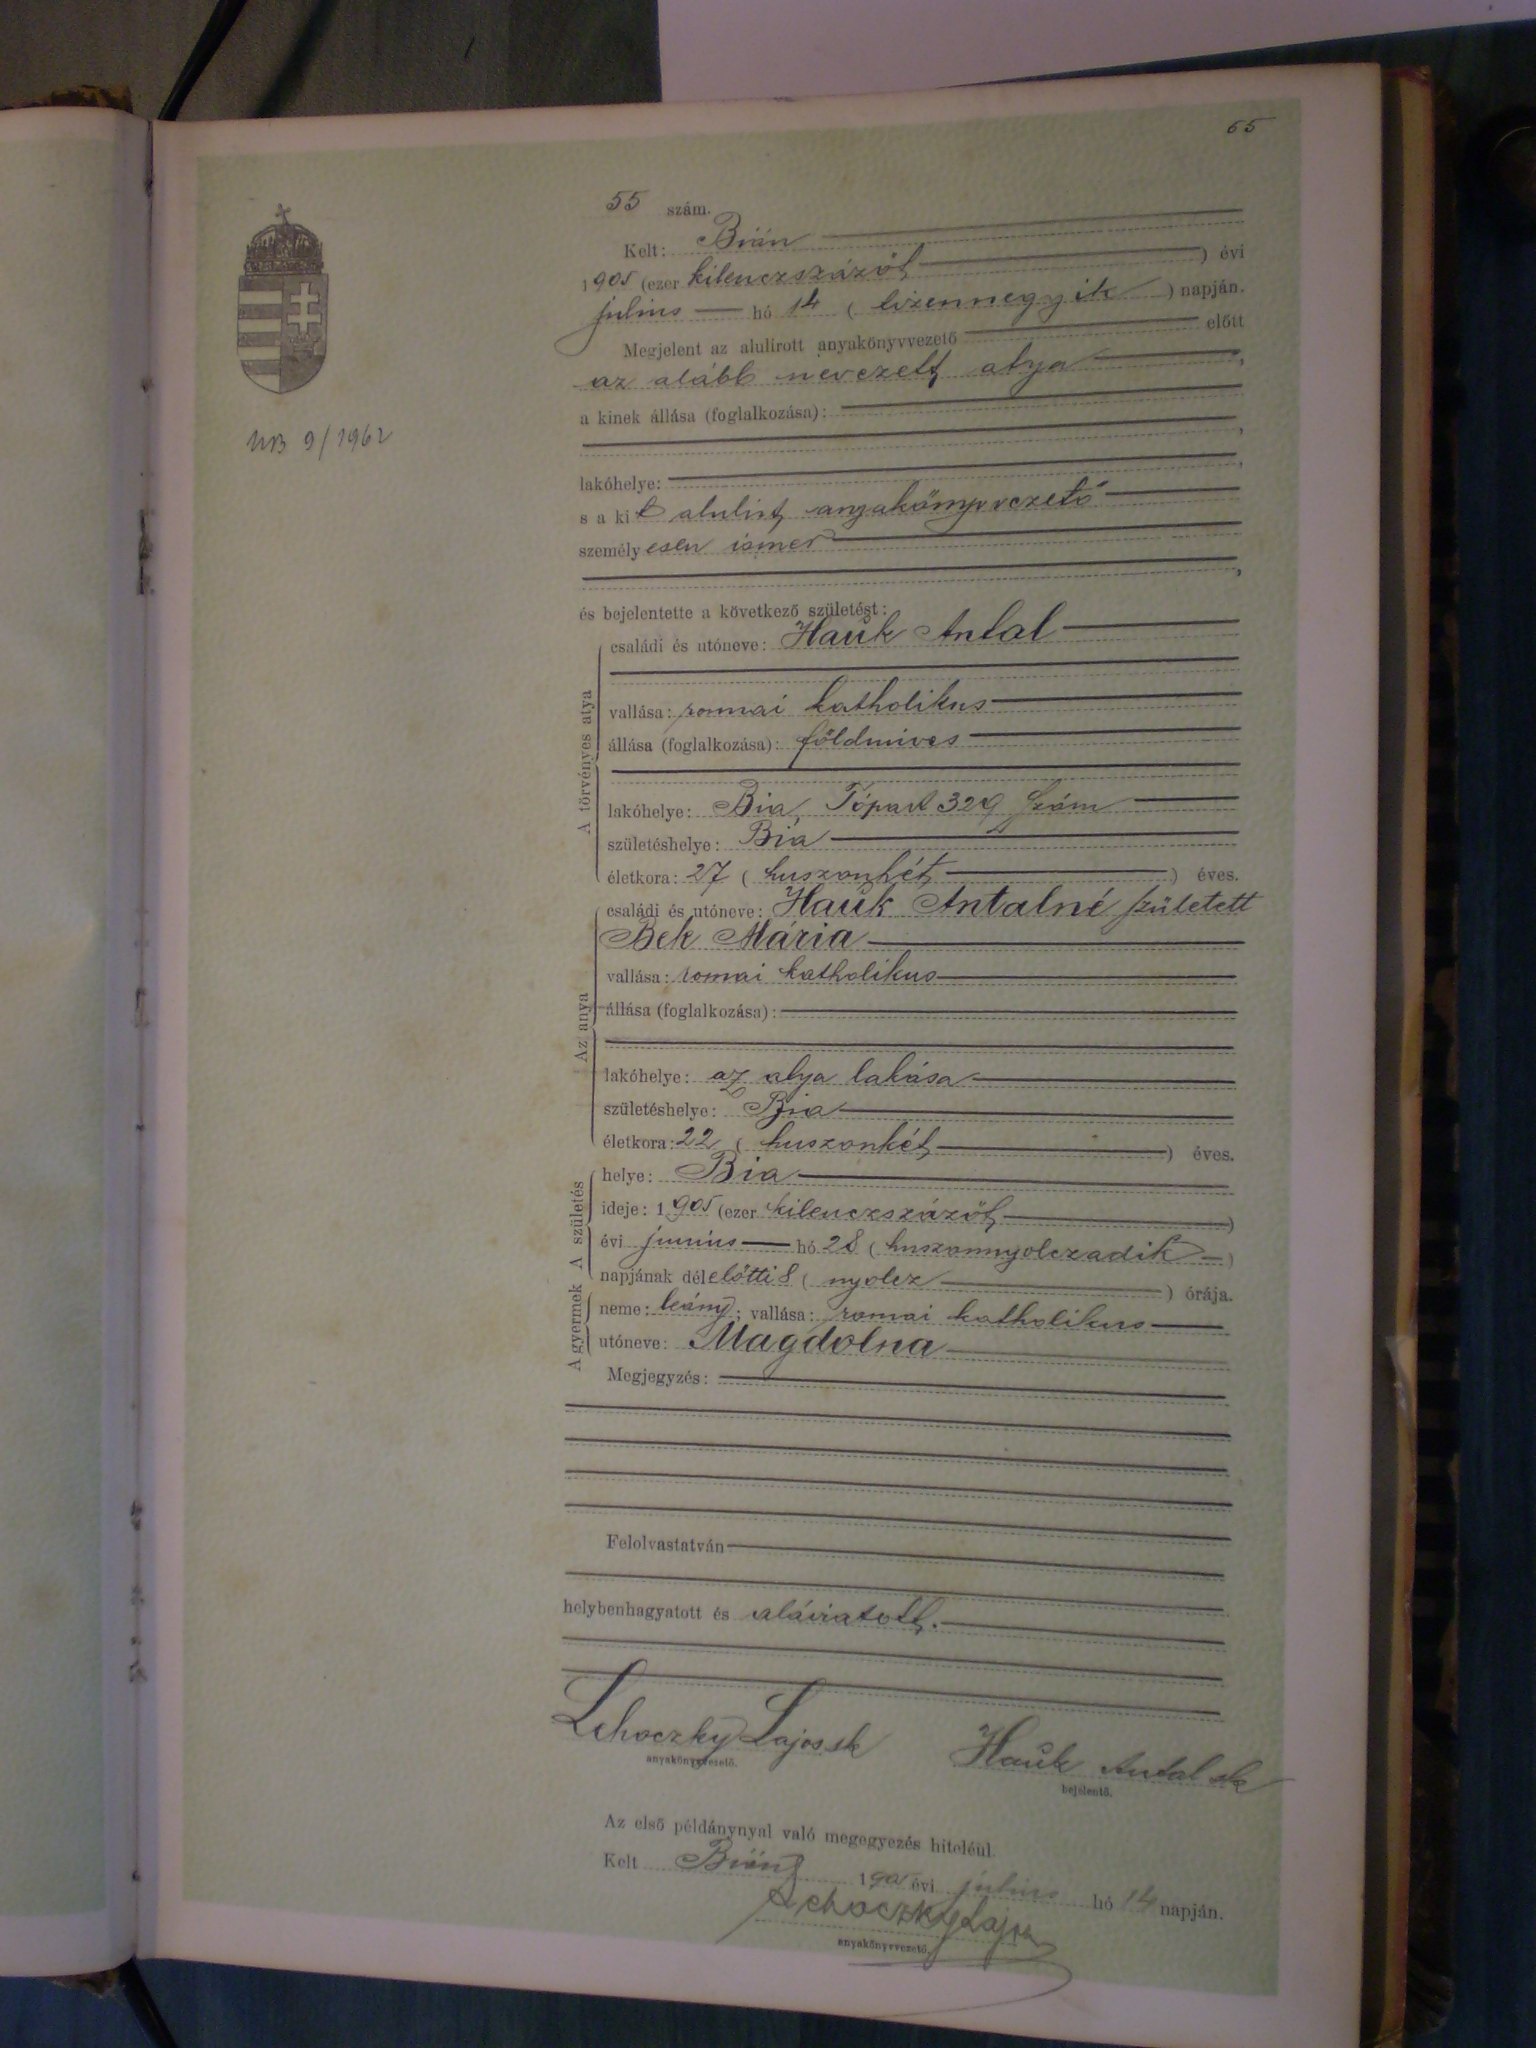 65
55 szám.
Kelt: Bián
1905 (ezer kilenczszázöt) évi
julius hó 14 (tizennegyik) napján.
Megjelent az alulirott anyakönyvvezető előtt
az alább nevezett atya,
a kinek állása (foglalkozása):
,
lakóhelye: ,
s a kit alulirt anyakönyvvezető
személyesen ismer
,
és bejelentette a következő születést:
A törvényes atya
családi és utóneve: Hauk Antal
vallása: romai katholikus
állása (foglalkozása): földmives
lakóhelye: Bia, Tópart 329 szám
születéshelye: Bia
életkora: 27 (huszonhét) éves.
Az anya
családi és utóneve: Hauk Antalné született
Bek Mária
vallása: romai katholikus
állása (foglalkozása):
lakóhelye: az atya lakása
születéshelye: Bia
életkora: 22 (huszonkét) éves.
A születés
helye: Bia
ideje: 1905 (ezer kilenczszázöt)
évi junius hó 28 (huszonnyolczadik)
napjának délelőtti 8 (nyolcz) órája.
A gyermek
neme: leány; vallása: romai katholikus
utóneve: Magdolna
Megjegyzés:
Felolvastatván
helybenhagyatott és aláiratott.
Lehoczky Lajos sk Hauk Antal sk
anyakönyvvezető. bejelentő.
Az első példánynyal való megegyezés hiteléül.
Kelt Bián, 1905 évi julius hó 14 napján.
Lehoczky Lajos
anyakönyvvezető.
9/1962